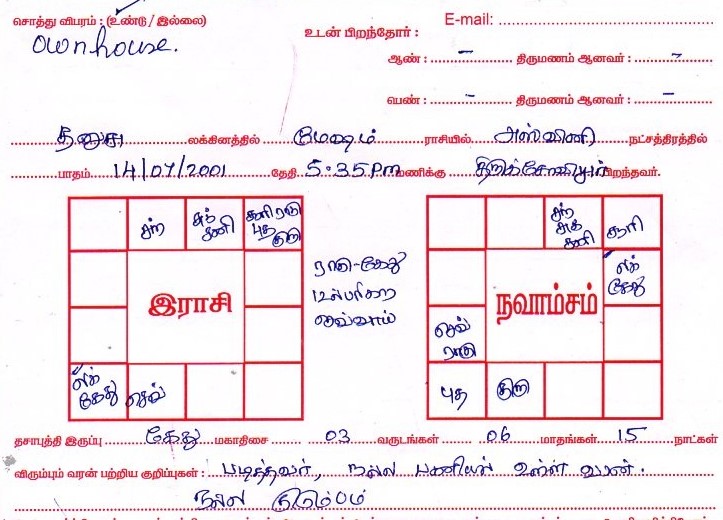 சொத்து விபரம் : (உண்டு / இல்லை)
own house.
E-mail:
உடன் பிறந்தோர் :
ஆண் : – திருமணம் ஆனவர் : –
பெண் : – திருமணம் ஆனவர் : –
தனுசு லக்கினத்தில் மேஷம் ராசியில் அஸ்வினி நட்சத்திரத்தில்
பாதம் 14/07/2001 தேதி 5:35 PM மணிக்கு பிறந்தவர்.
சந் சுக் சனி சூரி ராகு புத குரு
இராசி
லக் கேது செவ்
ராகு-கேது
செவ்வாய்
சந் சுக் சனி சூரி
லக் கேது
நவாம்சம்
செவ் ராகு
புத குரு
தசாபுத்தி இருப்பு கேது மகாதிசை 03 வருடங்கள் 06 மாதங்கள் 15 நாட்கள்
விரும்பும் வரன் பற்றிய குறிப்புகள் : படித்தவர், நல்ல பணியில் உள்ள வரன்.
நல்ல குடும்பம்